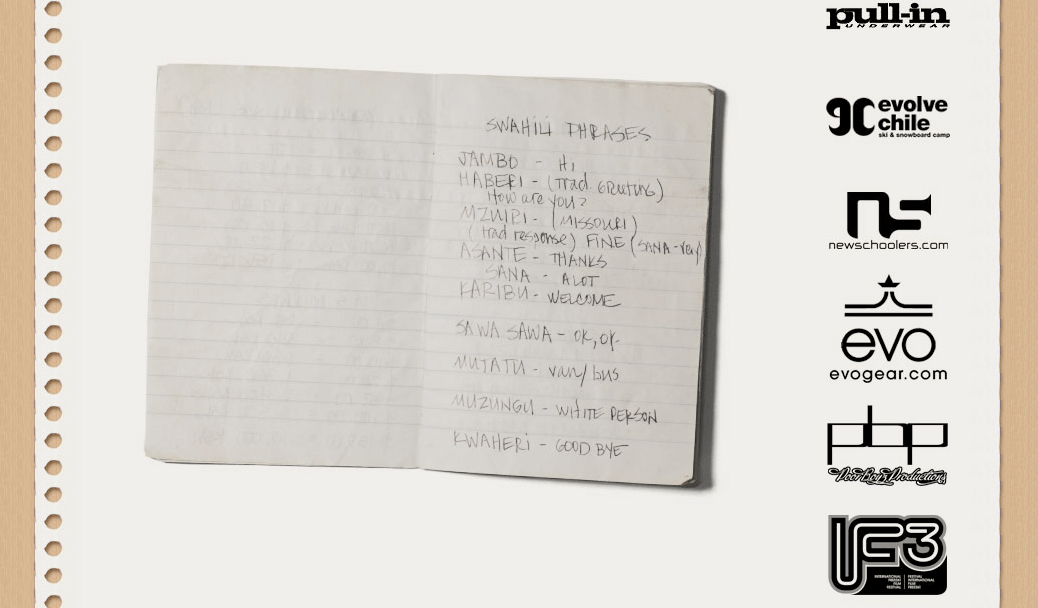 SWAHILI PHRASES
JAMBO - Hi
HABERI - (Trad. GREETING)
How are you?
MZURI - (MISSOURI)
(trad response) FINE (SANA - very)
ASANTE - THANKS
SANA - A LOT
KARIBU - WELCOME
SAWA SAWA - OK, OK
MUTATU - van/bus
MUZUNGU - WHITE PERSON
KWAHERI - GOOD BYE
pull-in
UNDERWEAR
evolve
chile
ski & snowboard camp
ns
newschoolers.com
evo
evogear.com
pbp
Poor Boyz Productions
IF3
INTERNATIONAL
FREESKI
FILM
FESTIVAL
FESTIVAL
INTERNATIONAL
FILM
FREESKI